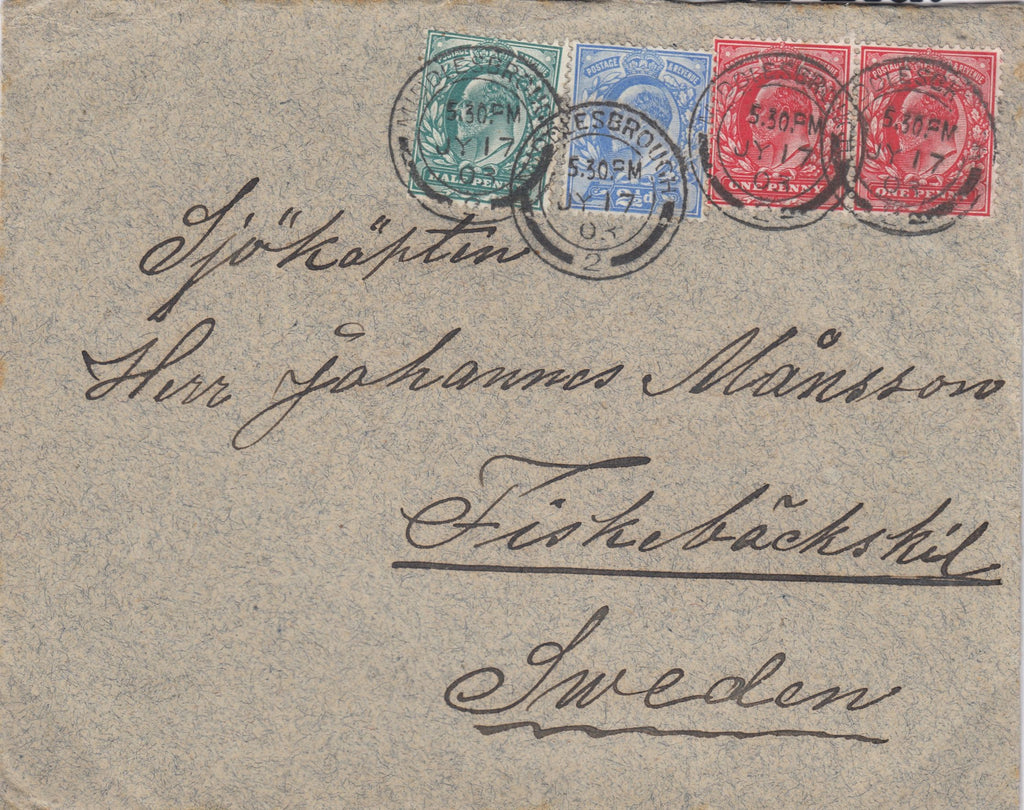 POSTAGE & REVENUE
HALF PENNY
POSTAGE & REVENUE
2½d
ONE PENNY
ONE
MIDDLESBROUGH
5.30.PM
JY 17
03
MIDDLESBROUGH
5.30.PM
JY 17
03
2
5.30.PM
JY 17
03
5.30.PM
JY 17
Sjökäpten
Herr Johannes Månsson
Fiskebäckskil
Sweden